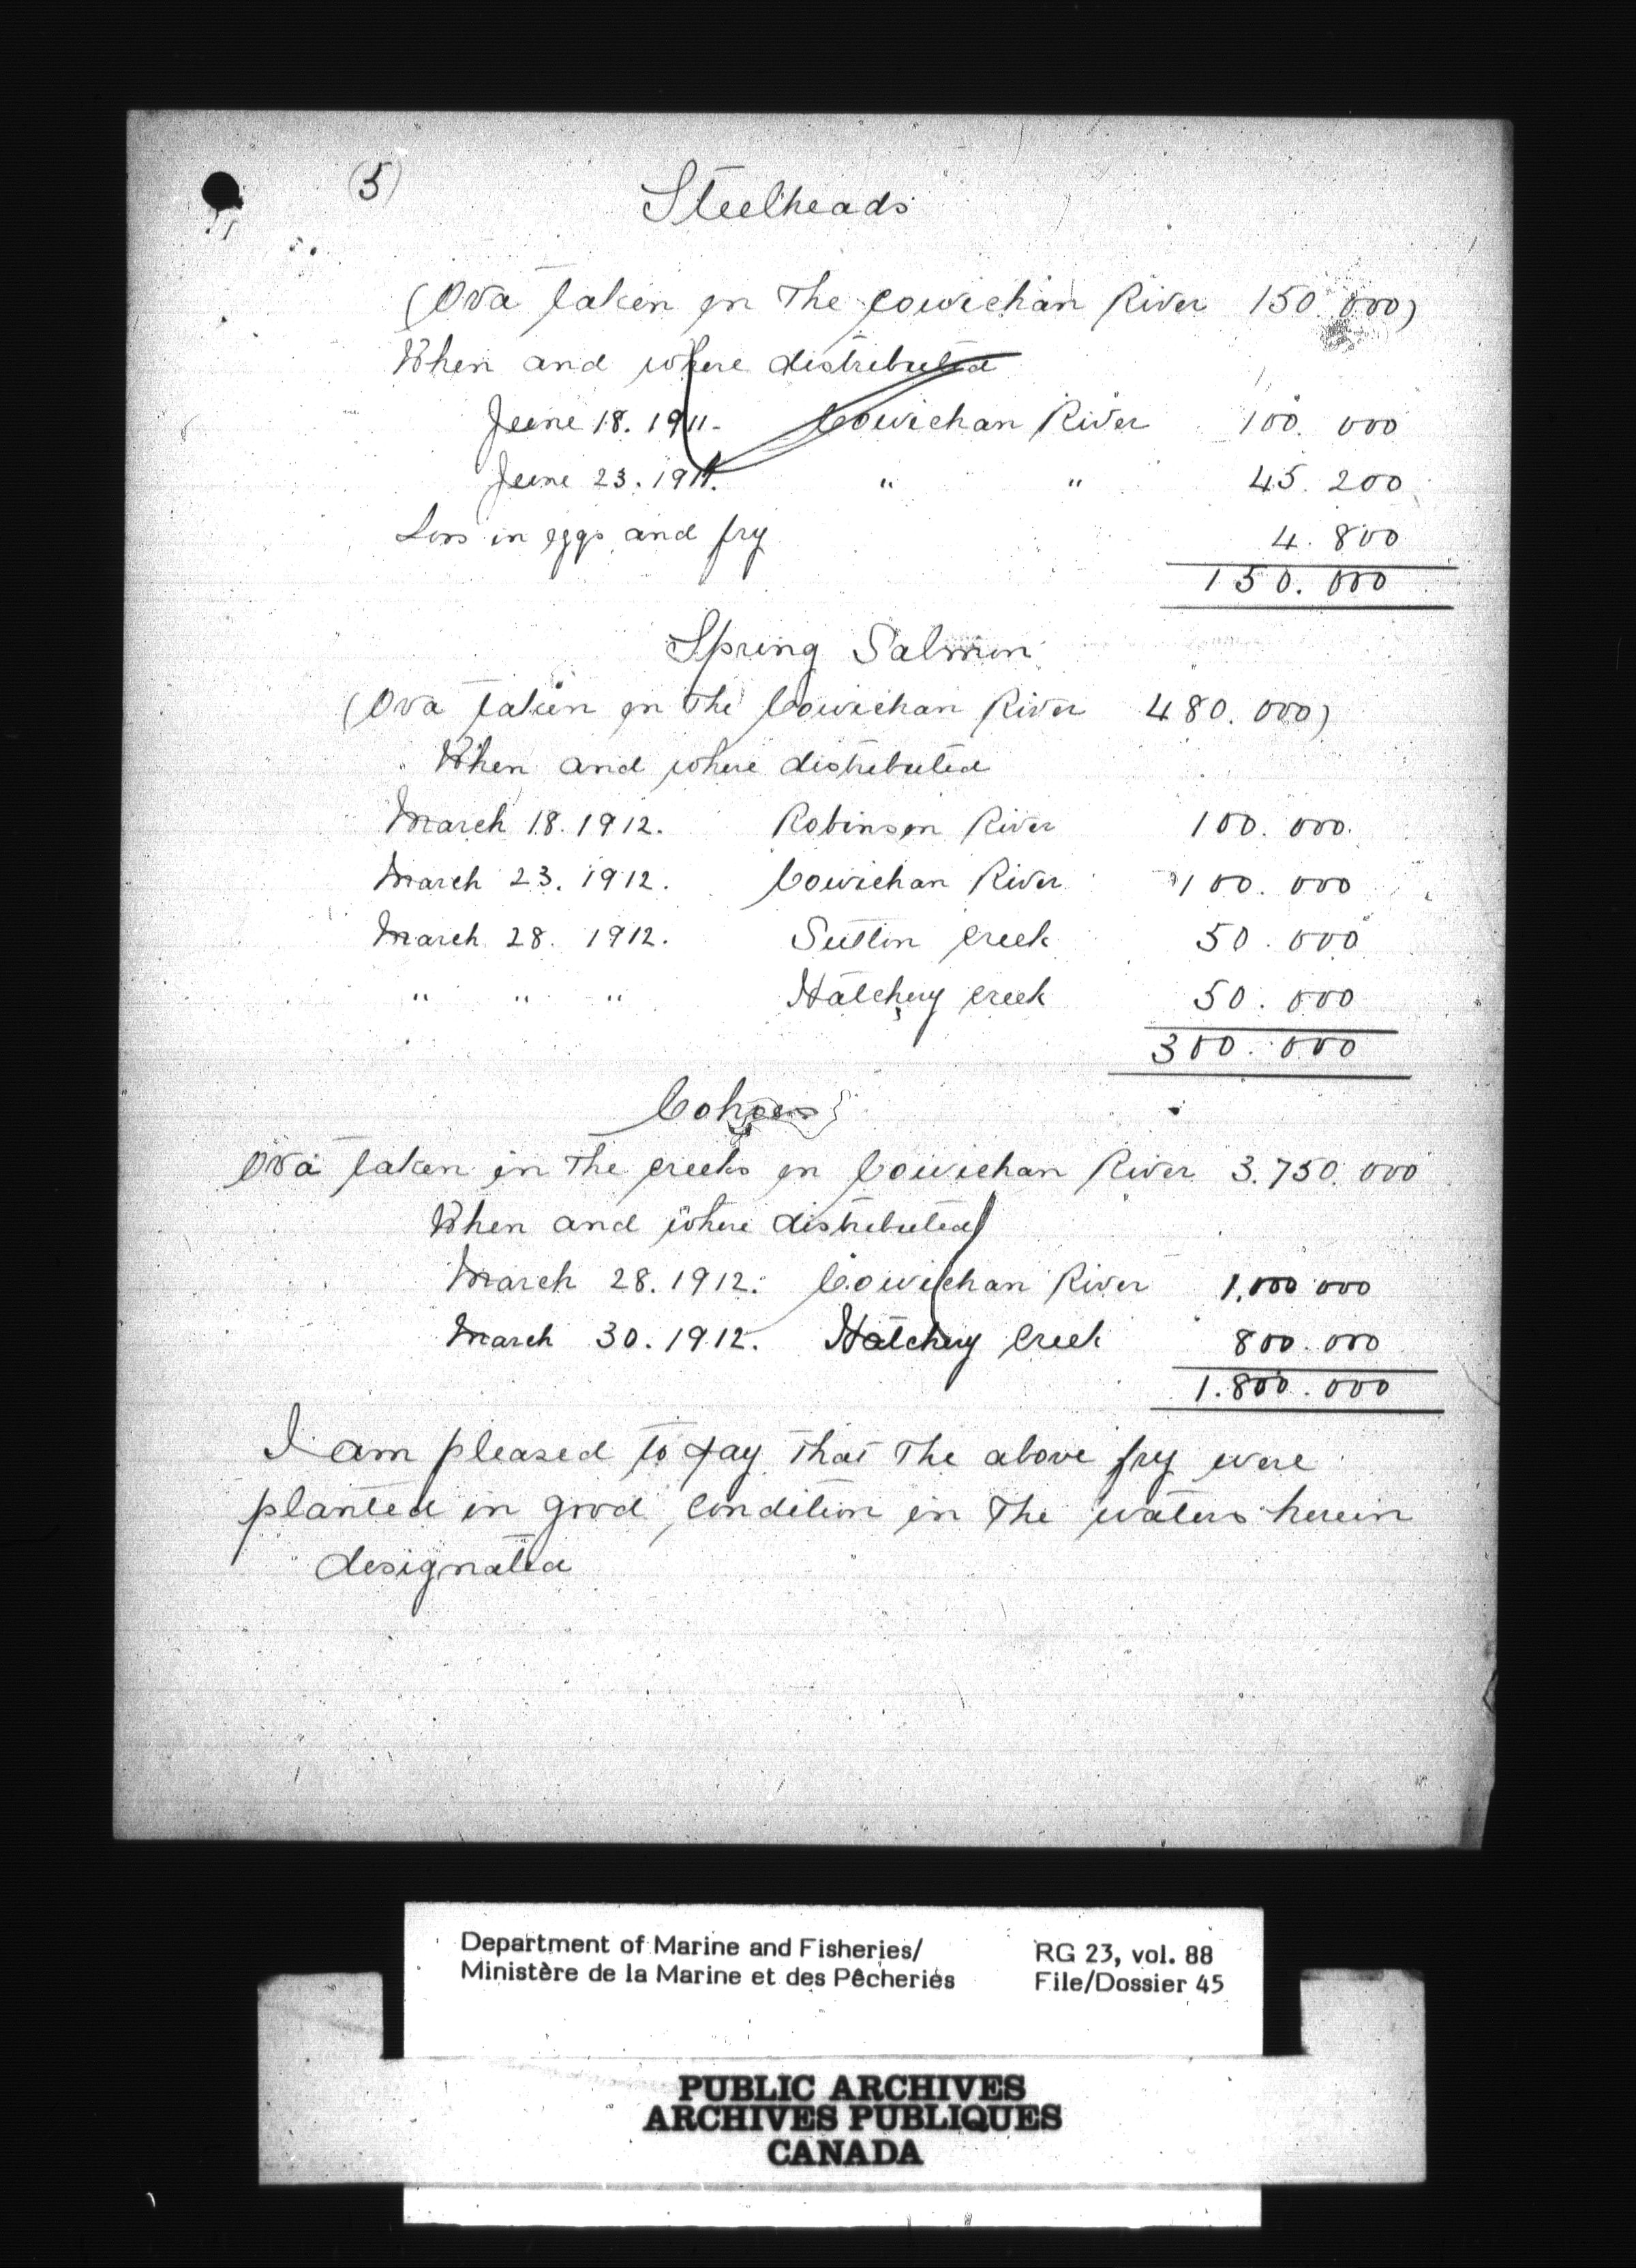 (5)
Steelheads
(Ova taken in The Cowichan River 150.000)
When and where distributed
June 18. 1911. Cowichan River 100. 000
June 23. 1911. " " 45. 200
Loss in eggs and fry 4. 800
150. 000
Spring Salmon
(Ova taken in The Cowichan River 480. 000)
When and where distributed
March 18. 1912. Robinson River 100. 000.
March 23. 1912. Cowichan River 100. 000
March 28. 1912. Sutton Creek 50. 000
" " " Hatchery Creek 50. 000
300. 000
Cohoes
Ova taken in The creeks in Cowichan River 3.750.000
When and where distributed
March 28. 1912. Cowichan River 1.000 000
March 30. 1912. Hatchery Creek 800. 000
1.800.000
I am pleased to say That The above fry were
planted in good condition in The waters herein
designated
Department of Marine and Fisheries/ RG 23, vol. 88
Ministère de la Marine et des Pêcheries File/Dossier 45
PUBLIC ARCHIVES
ARCHIVES PUBLIQUES
CANADA